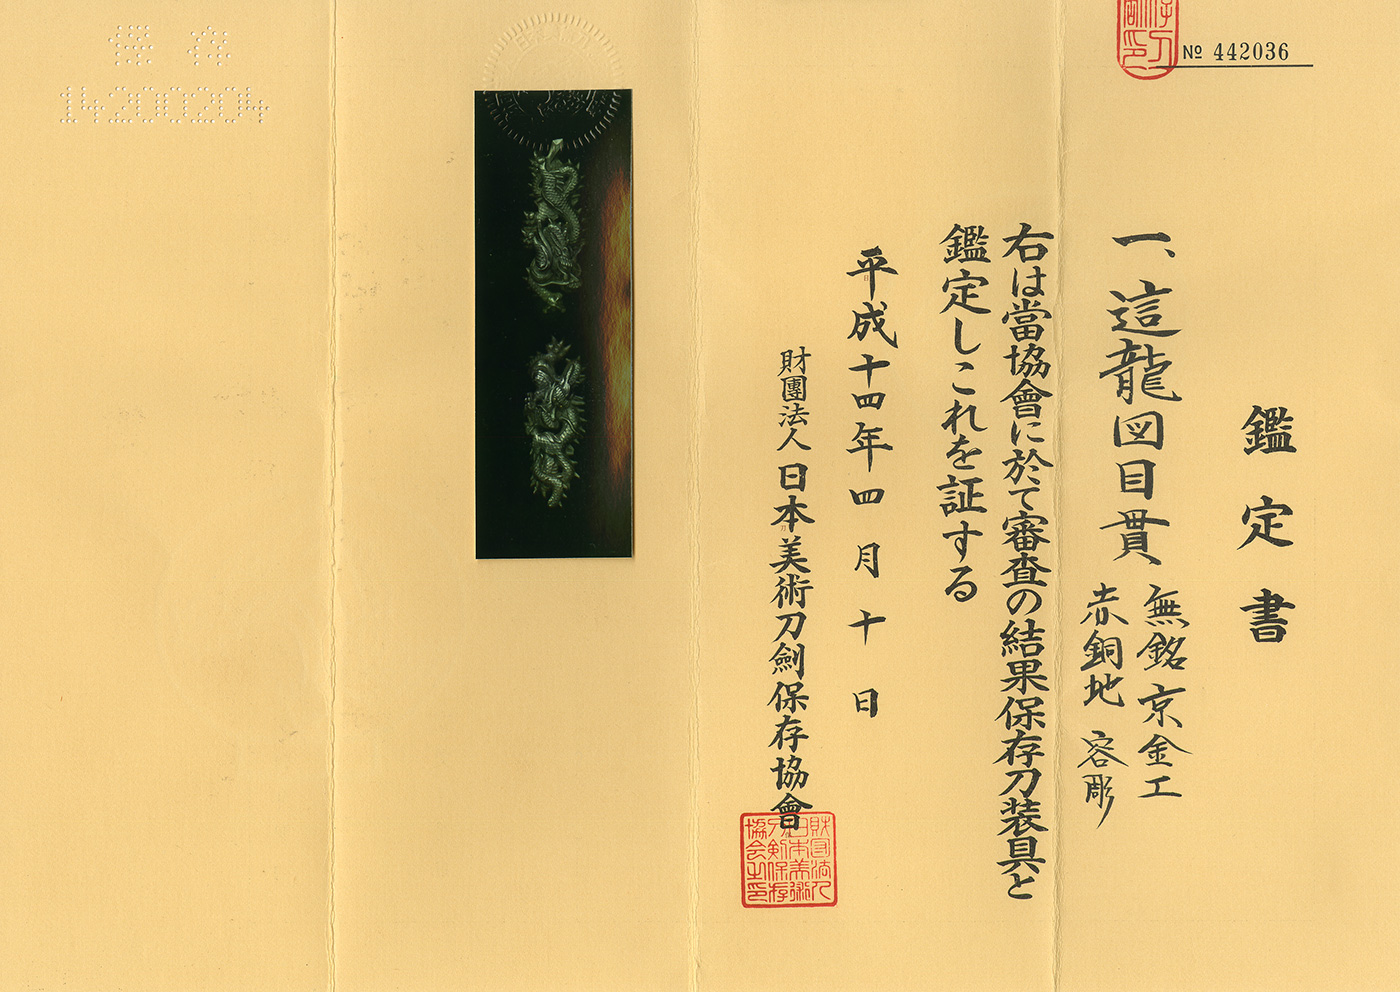 No 442036
鑑定書
一、這龍図目貫、
無銘 京金工
赤銅地 容彫
右は當協會に於て審査の結果保存刀装具と
鑑定しこれを証する
平成十四年四月十日
財團法人 日本美術刀劍保存協會
財団法人日本美術刀剣保存協会之印
保存
14200204